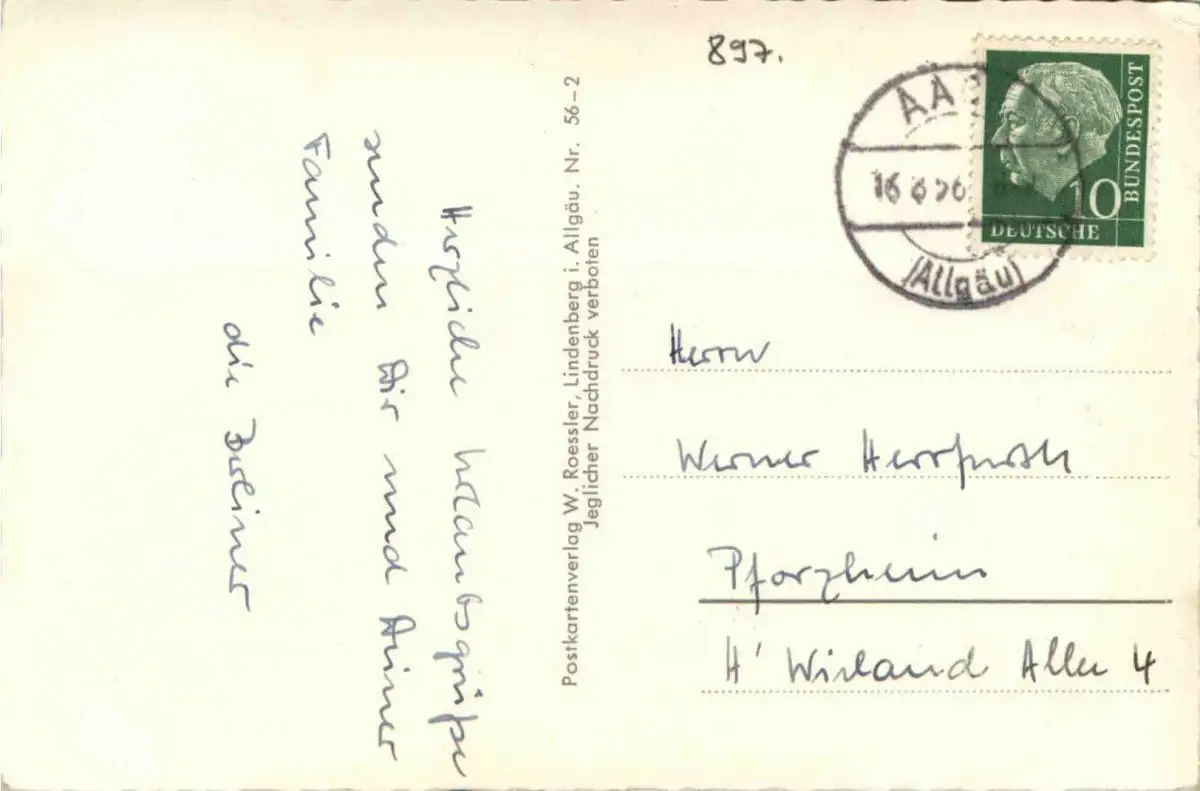 Herzliche Urlaubsgrüße
senden Dir und Deiner
Familie
die Berliner
Postkartenverlag W. Roessler, Lindenberg i. Allgäu. Nr. 56-2
Jeglicher Nachdruck verboten
897.
(Allgäu)
10
DEUTSCHE
BUNDESPOST
Herrn
Werner Herrfurth
Pforzheim
H' Wieland Allee 4